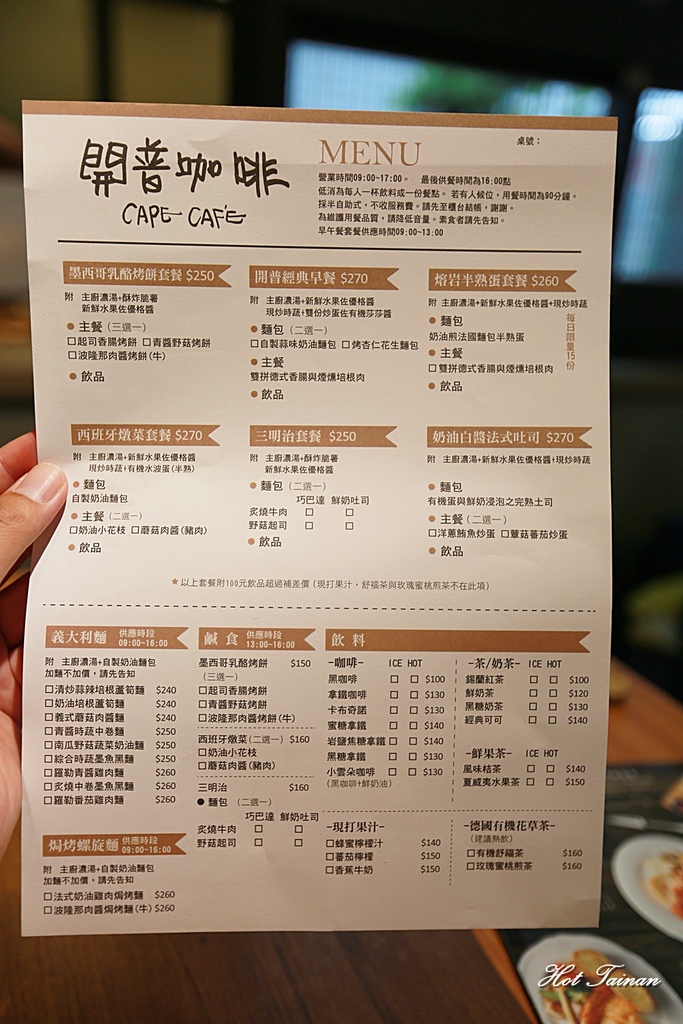 開普咖啡
CAPE CAFE
MENU
桌號：
營業時間09:00~17:00。 最後供餐時間為16:00點
低消為每人一杯飲料或一份餐點。 若有人候位，用餐時間為90分鐘。
採半自助式，不收服務費。請先至櫃台結帳，謝謝。
為維護用餐品質，請降低音量。素食者請先告知。
早午餐套餐供應時間09:00~13:00
墨西哥乳酪烤餅套餐 $250
附 主廚濃湯+酥炸脆薯
新鮮水果佐優格醬
● 主餐（三選一）
□起司香腸烤餅 □青醬野菇烤餅
□波隆那肉醬烤餅(牛)
● 飲品
開普經典早餐 $270
附 主廚濃湯+新鮮水果佐優格醬
現炒時蔬+雙份炒蛋佐有機莎莎醬
● 麵包（二選一）
□自製蒜味奶油麵包 □烤杏仁花生麵包
● 主餐
雙拼德式香腸與煙燻培根肉
● 飲品
熔岩半熟蛋套餐 $260
附 主廚濃湯+新鮮水果佐優格醬+現炒時蔬
● 麵包
奶油煎法國麵包半熟蛋
● 主餐
□雙拼德式香腸與煙燻培根肉
● 飲品
每日限量15份
西班牙燉菜套餐 $270
附 主廚濃湯+新鮮水果佐優格醬
現炒時蔬+有機水波蛋(半熟)
● 麵包
自製奶油麵包
● 主餐（二選一）
□奶油小花枝 □蘑菇肉醬(豬肉)
● 飲品
三明治套餐 $250
附 主廚濃湯+酥炸脆薯
新鮮水果佐優格醬
● 麵包（二選一）
巧巴達 鮮奶吐司
炙燒牛肉 □ □
野菇起司 □ □
● 飲品
奶油白醬法式吐司 $270
附 主廚濃湯+新鮮水果佐優格醬+現炒時蔬
● 麵包
有機蛋與鮮奶浸泡之完熟土司
● 主餐（二選一）
□洋蔥鮪魚炒蛋 □蕈菇蕃茄炒蛋
● 飲品
★以上套餐附100元飲品超過補差價（現打果汁，舒福茶與玫瑰蜜桃煎茶不在此項）
義大利麵 供應時段 09:00~16:00
附 主廚濃湯+自製奶油麵包
加麵不加價，請先告知
□清炒蒜辣培根蘆筍麵 $240
□奶油培根蘆筍麵 $240
□義式蘑菇肉醬麵 $240
□青醬時蔬中卷麵 $250
□南瓜野菇蔬菜奶油麵 $250
□綜合時蔬墨魚黑麵 $250
□羅勒青醬雞肉麵 $260
□炙燒中卷墨魚黑麵 $260
□羅勒番茄雞肉麵 $260
焗烤螺旋麵 供應時段 09:00~16:00
附 主廚濃湯+自製奶油麵包
加麵不加價，請先告知
□法式奶油雞肉焗烤麵 $260
□波隆那肉醬焗烤麵(牛) $260
鹹食 供應時段 13:00~16:00
墨西哥乳酪烤餅 $150
（三選一）
□起司香腸烤餅
□青醬野菇烤餅
□波隆那肉醬烤餅(牛)
西班牙燉菜(二選一) $160
□奶油小花枝
□蘑菇肉醬(豬肉)
三明治 $160
● 麵包（二選一）
巧巴達 鮮奶吐司
炙燒牛肉 □ □
野菇起司 □ □
飲料
-咖啡- ICE HOT
黑咖啡 □ □ $100
拿鐵咖啡 □ □ $130
卡布奇諾 □ □ $130
蜜糖拿鐵 □ □ $140
岩鹽焦糖拿鐵 □ □ $140
黑糖拿鐵 □ □ $130
小雲朵咖啡 □ □ $130
(黑咖啡+鮮奶油)
-茶/奶茶- ICE HOT
錫蘭紅茶 □ □ $100
鮮奶茶 □ □ $120
黑糖奶茶 □ □ $130
經典可可 □ □ $140
-鮮果茶- ICE HOT
風味桔茶 □ □ $140
夏威夷水果茶 □ □ $150
-現打果汁-
□蜂蜜檸檬汁 $140
□蕃茄檸檬 $150
□香蕉牛奶 $150
-德國有機花草茶-
(建議熱飲)
□有機舒福茶 $160
□玫瑰蜜桃煎茶 $160
Hot Tainan